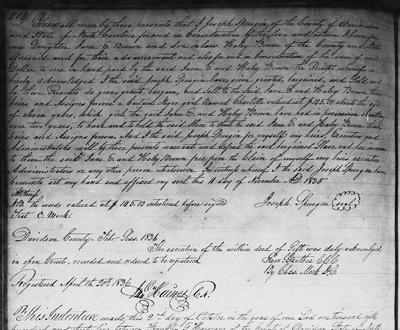 Know all men by these presents that I Joseph Spurgin of the County of Davidson
and State of North Carolina for and in Consideration of the love and esteem I have for
my Daughter Jane E. Brown and Son in law Haley Brown of the County and State
aforesaid and for their advancement and also for and in Consideration of the sum of one
Dollar to me in hand paid by the said Jane E. and Haley Brown the Receipt whereof is
hereby acknowledged I the said Joseph Spurgin have given granted, bargained, and Sold and
by these Presents do give grant bargain, and Sell to the said Jane E. and Haley Brown their
heirs and Assigns forever a Certain Negro girl Named Charlotte valued at $145.00 about the age
of seven years, which girl the said Jane E. and Haley Brown have had in possession
over two years, to have and to hold the said Jane E. and Haley Brown their
heirs and Assigns forever And I the said Joseph Spurgin for myself my heirs, Executors and
Administrators will by these presents warrant and defend the said Slave
to them the said Jane E. and Haley Brown free from the Claim of myself my heirs executors
Administrators or any other person whatsoever. In witness whereof I the said Joseph Spurgin have
hereunto set my hand and affixed my seal this day of November A.D. 1835
NB the words valued at $145.00 interlined before signed
Joseph Spurgin seal
Test C. Mock
Davidson County Feb. Sess. 1836
The execution of the within deed of Gift was duly acknowledged
in open Court, recorded, and ordered to be registered
By Chas. Mock D.C.
Registered April th 1836
This Indenture made this 2nd day of October in the year of our Lord one thousand eight